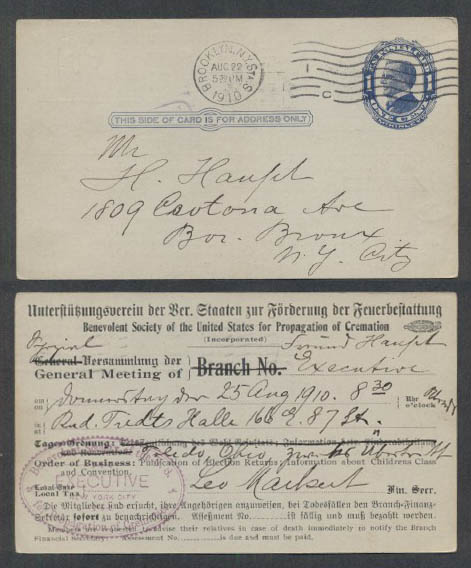 BROOKLYN, N.Y. STA. S.
AUG 22
5 PM
1910
1 C
1 ONE CENT 1
THIS SIDE OF CARD IS FOR ADDRESS ONLY
Mr
H. Haupt
1809 Crotona Ave
Bor. Bronx
N.Y. City
Unterstützungsverein der Ver. Staaten zur Förderung der Feuerbestattung
Benevolent Society of the United States for Propagation of Cremation
(Incorporated)
Freund Haupt
General-Versammlung der
General Meeting of Branch No. Executive
am Donnerstag den 25 Aug 1910. 8 30 Uhr
on o'clock
in Rud. Tiedts Halle 87 St.
Tages-Ordnung:
und Konvention Toledo, Ohio,
Order of Business: Publication of Election Returns, Information about Childrens Class
and Convention.
Local Tax Leo Markert Fin. Secr.
EXECUTIVE
NEW YORK CITY
Die Mitglieder sind ersucht, ihre Angehörigen anzuweisen, bei Todesfällen den Branch-Finanz-
Sekretär sofort zu benachrichtigen. Assessment No. ist fällig und muß bezahlt werden.
Members are requested to advise their relatives in case of death immediately to notify the Branch
Financial Secretary. Assessment No. is due and must be paid.